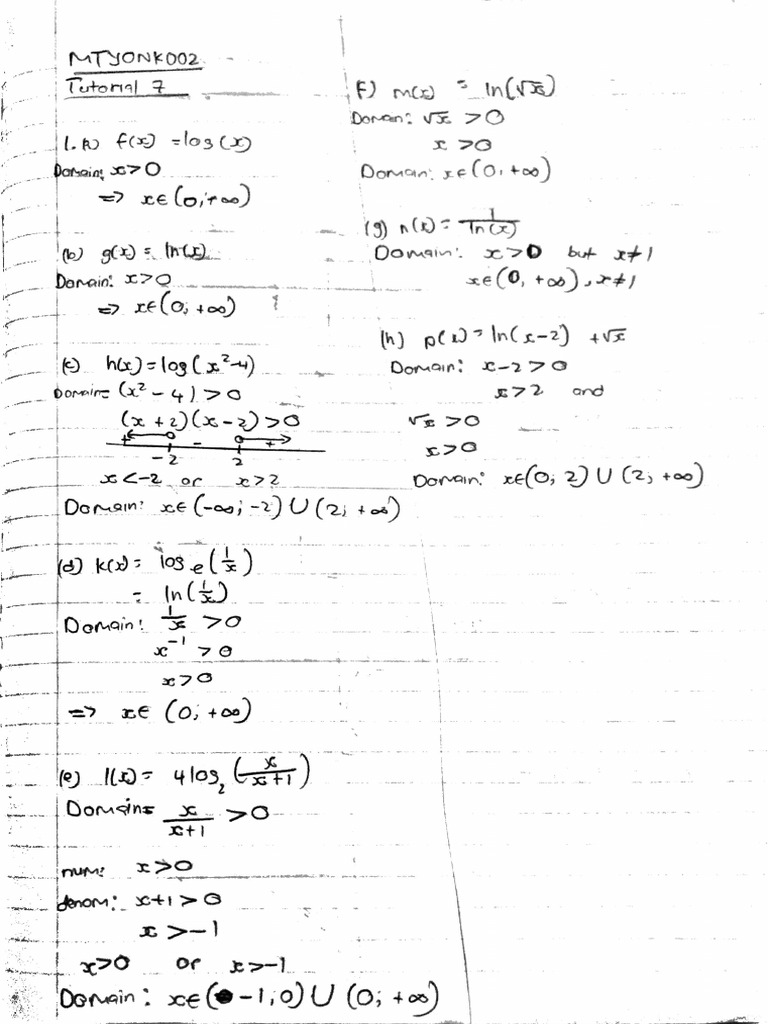 MTYONK002
Tutorial 7
1.a) f(x) = log(x)
Domain: x>0
=> x∈(0;+∞)
(b) g(x) = ln(x)
Domain: x>0
=> x∈(0;+∞)
(c) h(x) = log(x²-4)
Domain= (x² - 4) > 0
(x + 2)(x - 2) > 0
+ - +
-2 2
x<-2 or x>2
Domain: x∈(-∞;-2) ∪ (2;+∞)
(d) k(x) = log_e(1/x)
= ln(1/x)
Domain: 1/x > 0
x⁻¹ > 0
x>0
=> x∈ (0;+∞)
(e) l(x) = 4log₂(x/(x+1))
Domain= x/(x+1) > 0
num: x>0
denom: x+1 > 0
x > -1
x>0 or x>-1
Domain: x∈(-1;0) ∪ (0;+∞)
f) m(x) = ln(√x)
Domain: √x > 0
x > 0
Domain: x∈(0;+∞)
(g) n(x) = 1/ln(x)
Domain: x>0 but x≠1
x∈(0,+∞), x≠1
(h) p(x) = ln(x-2) + √x
Domain: x-2 > 0
x>2 and
√x > 0
x>0
Domain: x∈(0;2) ∪ (2;+∞)